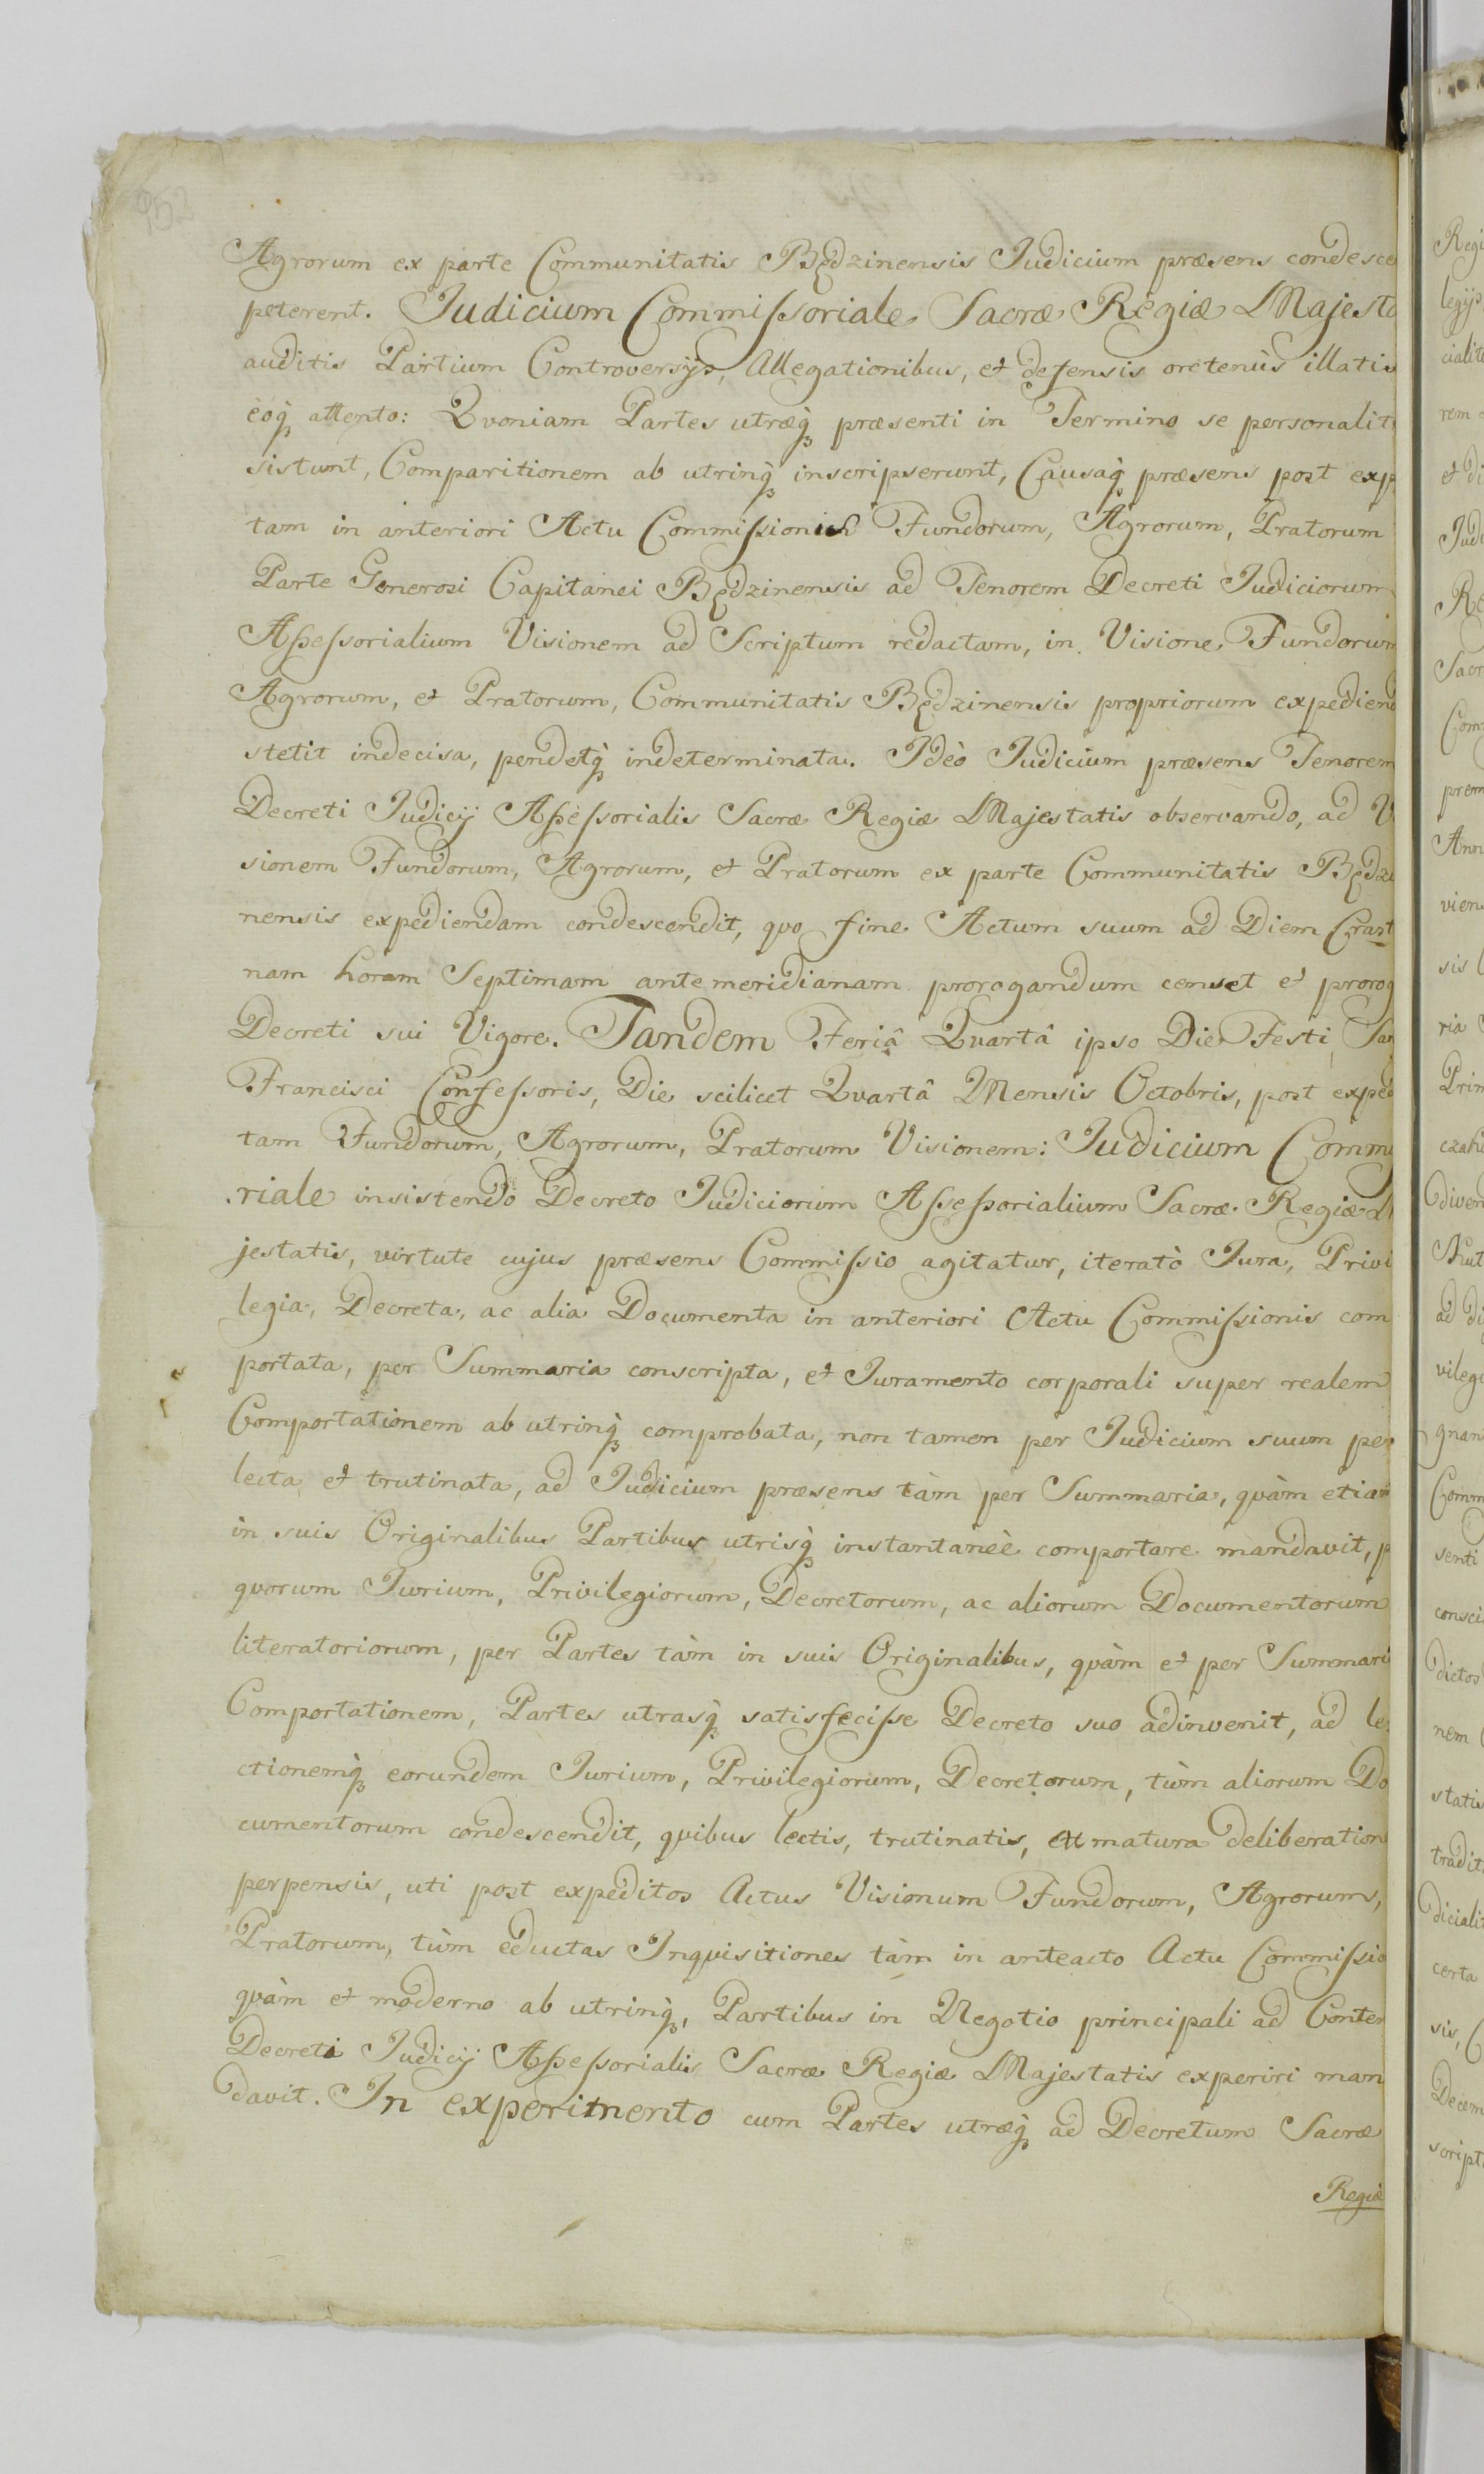 Agrorum ex parte Communitatis Będzinensis Judicium præsens condesce
peterent. Judicium Commissoriale Sacræ Regiæ Majesta
auditis Partium Controversijs, Allegationibus, et defensis oretenùs illatis
eoq attento: Qvoniam Partes utræq præsenti in Termino se personalit
sistunt, Comparitionem ab utrinq inscripserunt, Causaq præsens post exp
tam in anteriori Actu Commissionis Fundorum, Agrorum, Pratorum
Parte Generosi Capitanei Będzinensis ad Tenorem Decreti Judiciorum
Assessorialium Visionem ad Scriptum redactam, in Visione Fundorum
Agrorum, et Pratorum, Communitatis Będzinensis propriorum expediend
stetit indecisa, pendetq indeterminata. Ideò Judicium præsens Tenorem
Decreti Judicij Assessorialis Sacræ Regiæ Majestatis observando, ad Vi
sionem Fundorum, Agrorum, et Pratorum ex parte Communitatis Będzi
nensis expediendam condescendit, qvo fine Actum suum ad Diem Crasti
nam horam Septimam antemeridianam prorogandum censet et prorog
Decreti sui Vigore. Tandem Feriâ Qvartâ ipso Die Festi San
Francisci Confessoris, Die scilicet Qvartâ Mensis Octobris, post exped
tam Fundorum, Agrorum, Pratorum Visionem: Judicium Commi
riale insistendo Decreto Judiciorum Assessorialium Sacræ Regiæ M
jestatis, virtute cujus præsens Commissio agitatur, iteratò Jura, Privi
legia, Decreta, ac alia Documenta in anteriori Actu Commissionis com
portata, per Summaria conscripta, et Juramento corporali super realem
Comportationem ab utrinq comprobata, non tamen per Judicium suum per
lecta et trutinata, ad Judicium præsens tàm per Summaria, qvàm etiam
in suis Originalibus Partibus utrisq instantaneè comportare mandavit, p
qvorum Jurium, Privilegiorum, Decretorum, ac aliorum Documentorum
literatoriorum, per Partes tàm in suis Originalibus, qvàm et per Summari
Comportationem, Partes utrasq satisfecisse Decreto suo adinvenit, ad le
ctionemq eorundem Jurium, Privilegiorum, Decretorum, tùm aliorum Do
cumentorum condescendit, qvibus lectis, trutinatis, et matura deliberation
perpensis, uti post expeditos Actus Visionum Fundorum, Agrorum,
Pratorum, tùm eductas Inqvisitiones tàm in anteacto Actu Commissio
qvàm et moderno ab utrinq, Partibus in Negotio principali ad Conten
Decreti Judicij Assessorialis Sacræ Regiæ Majestatis experiri man
davit. In experimento cum Partes utræq ad Decretum Sacræ
Regiæ